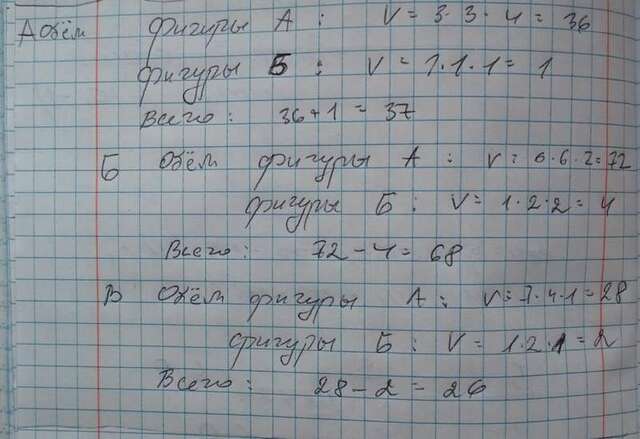 А Обём фигуры А : V = 3·3·4 = 36
фигуры Б : V = 1·1·1 = 1
Всего : 36+1 = 37
Б Обём фигуры А : V = 6·6·2=72
фигуры Б : V = 1·2·2 = 4
Всего : 72-4 = 68
В Обём фигуры А : V = 7·4·1=28
фигуры Б : V = 1·2·1 = 2
Всего : 28-2 = 26